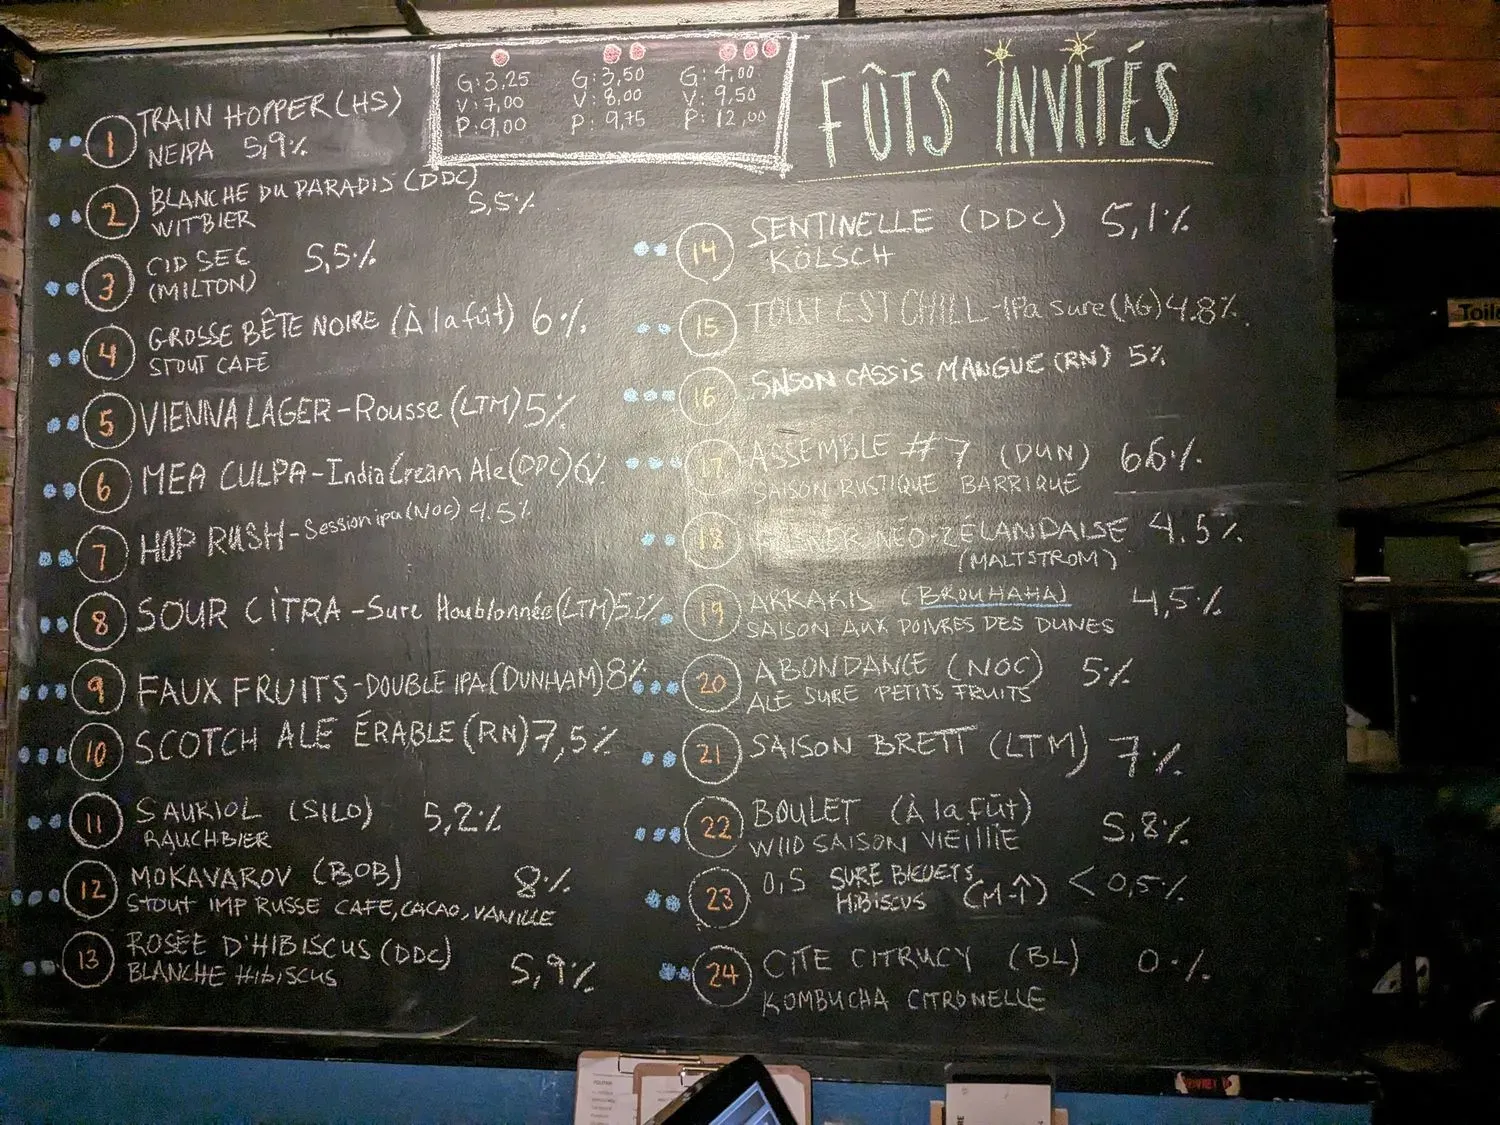 G: 3,25
V: 7,00
P: 9,00
G: 3,50
V: 8,00
P: 9,75
G: 4,00
V: 9,50
P: 12,00
FÛTS INVITÉS
1 TRAIN HOPPER (HS)
NEIPA 5,9%
2 BLANCHE DU PARADIS (DDC)
WITBIER 5,5%
3 CID SEC 5,5%
(MILTON)
4 GROSSE BÊTE NOIRE (À la fût) 6%
STOUT CAFE
5 VIENNA LAGER - Rousse (LTM) 5%
6 MEA CULPA - India Cream Ale (DDC) 6%
7 HOP RUSH - Session ipa (NOC) 4.5%
8 SOUR CITRA - Sure Houblonnée (LTM) 5.2%
9 FAUX FRUITS - DOUBLE IPA (DUNHAM) 8%
10 SCOTCH ALE ÉRABLE (RN) 7,5%
11 SAURIOL (SILO) 5,2%
RAUCHBIER
12 MOKAVAROV (BOB) 8%
STOUT IMP RUSSE CAFE, CACAO, VANILLE
13 ROSÉE D'HIBISCUS (DDC)
BLANCHE HIBISCUS 5,9%
14 SENTINELLE (DDC) 5,1%
KÖLSCH
15 TOUT EST CHILL - IPa sure (AG) 4.8%
16 SAISON CASSIS MANGUE (RN) 5%
17 ASSEMBLE #7 (DUN) 6.6%
SAISON RUSTIQUE BARRIQUE
18 NÉO-ZÉLANDAISE 4.5%
(MALTSTROM)
19 ARRAKIS (BROUHAHA) 4,5%
SAISON AUX POIVRES DES DUNES
20 ABONDANCE (NOC) 5%
ALE SURE PETITS FRUITS
21 SAISON BRETT (LTM) 7%
22 BOULET (À la fût) 5,8%
WILD SAISON VIEILLIE
23 0,5 SURE BLEUETS
HIBISCUS (M↑) <0,5%
24 CITE CITRUCY (BL) 0%
KOMBUCHA CITRONELLE